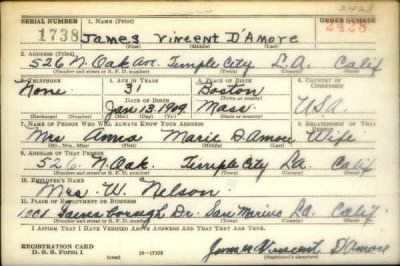 2428
SERIAL NUMBER 1. NAME (Print) ORDER NUMBER
1738 James Vincent D'Amore 2428
(First) (Middle) (Last)
2. ADDRESS (Print)
526 N. Oak Av. Temple City L.A. Calif
(Number and street or R. F. D. number) (Town) (County) (State)
3. TELEPHONE 4. AGE IN YEARS 5. PLACE OF BIRTH 6. COUNTRY OF CITIZENSHIP
None 31 Boston
DATE OF BIRTH
Jan 13 1909 Mass. U.S.A.
(Exchange) (Number) (Mo.) (Day) (Yr.) (State or country)
7. NAME OF PERSON WHO WILL ALWAYS KNOW YOUR ADDRESS 8. RELATIONSHIP OF THAT PERSON
Mrs Anna Marie D'Amore Wife
(Mr., Mrs., Miss) (First) (Middle) (Last)
9. ADDRESS OF THAT PERSON
526 N. Oak. Temple City LA. Calif
(Number and street or R. F. D. number) (Town) (County) (State)
10. EMPLOYER'S NAME
Mrs. W. Nelson.
11. PLACE OF EMPLOYMENT OR BUSINESS
1001 Dr. San Marino LA. Calif.
(Number and street or R. F. D. number) (Town) (County) (State)
I AFFIRM THAT I HAVE VERIFIED ABOVE ANSWERS AND THAT THEY ARE TRUE.
REGISTRATION CARD
D. S. S. Form 1 16-17105 James Vincent D'Amore
(over) (Registrant's signature)